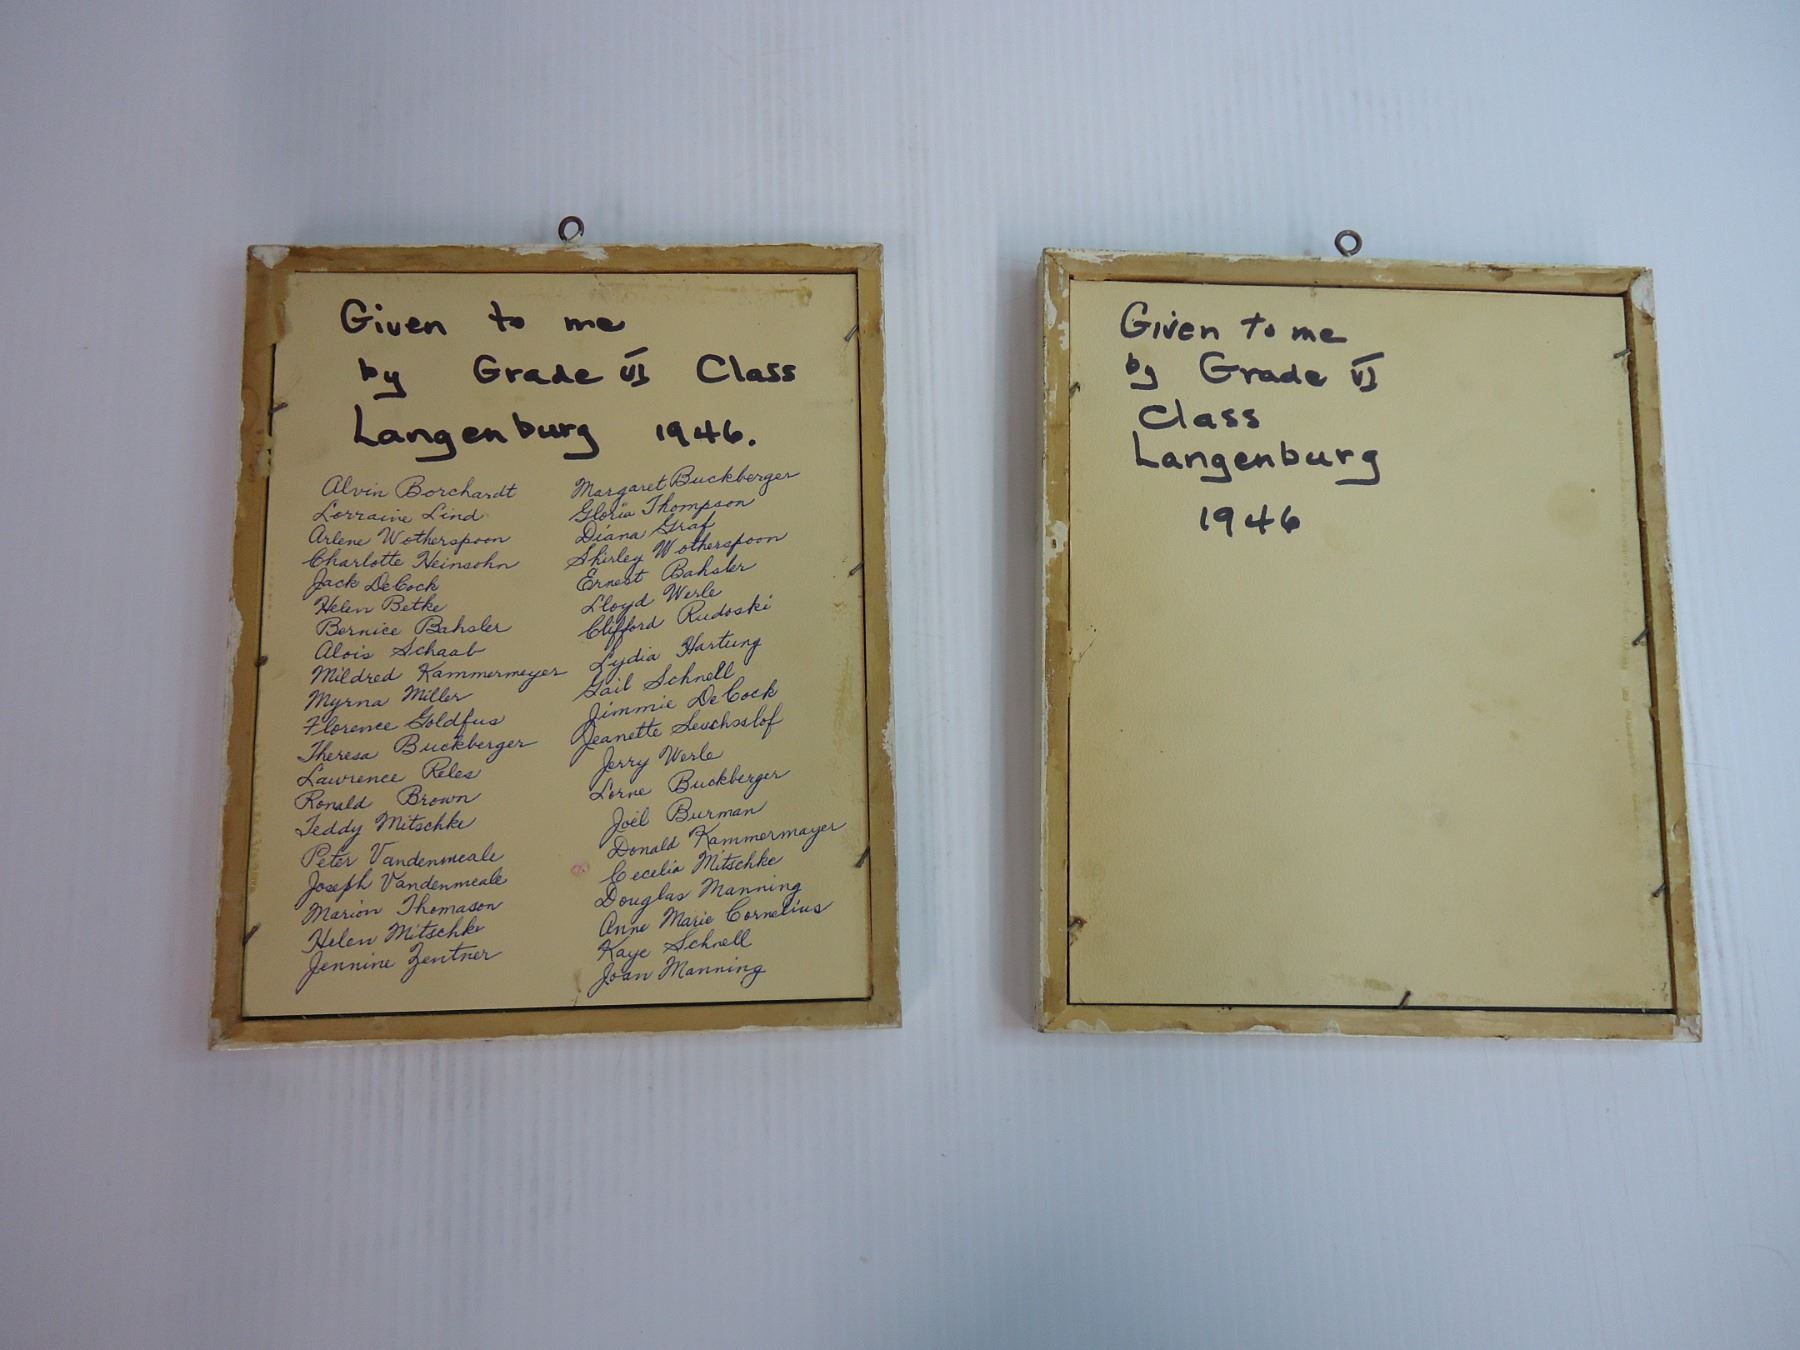 Given to me
by Grade VI Class
Langenburg 1946.
Alvin Borchardt
Lorraine Lind
Arlene Wotherspoon
Charlotte Heinsohn
Jack DeCock
Helen Betke
Bernice Bahsler
Alois Schaab
Mildred Kammermeyer
Myrna Miller
Florence Goldfus
Theresa Buckberger
Lawrence Reles
Ronald Brown
Teddy Mitschke
Peter Vandenmeale
Joseph Vandenmeale
Marion Thomason
Helen Mitschke
Jennine Zentner
Margaret Buckberger
Gloria Thompson
Diana Graf
Shirley Wotherspoon
Ernest Bahsler
Lloyd Werle
Clifford Rudoski
Lydia Hartung
Gail Schnell
Jimmie DeCock
Jeanette
Jerry Werle
Lorne Buckberger
Joel Burman
Donald Kammermayer
Cecelia Mitschke
Douglas Manning
Anne Marie Cornelius
Kaye Schnell
Joan Manning
Given to me
by Grade VI
Class
Langenburg
1946